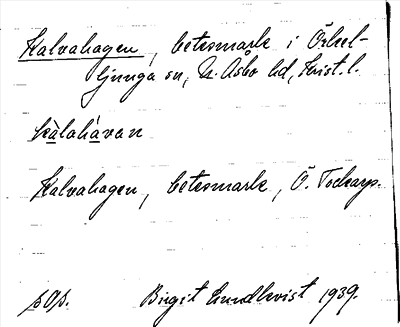 Kalvahagen, betesmark i Örkel-
ljunga sn, N. Åsbo hd, Krist. l.
kàlahávan
Kalvahagen, betesmark, Ö. Tockarp.
Birgit Lundkvist 1939.